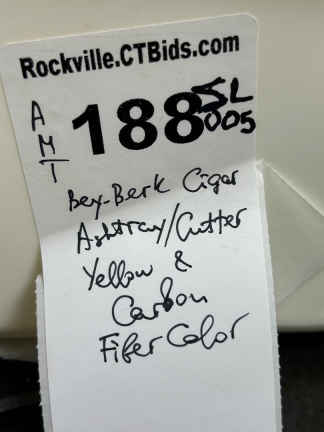 Rockville.CTBids.com
AMT
188 SL
005
Bey-Berk Cigar
Ashtray/Cutter
Yellow &
Carbon
Fiber Color